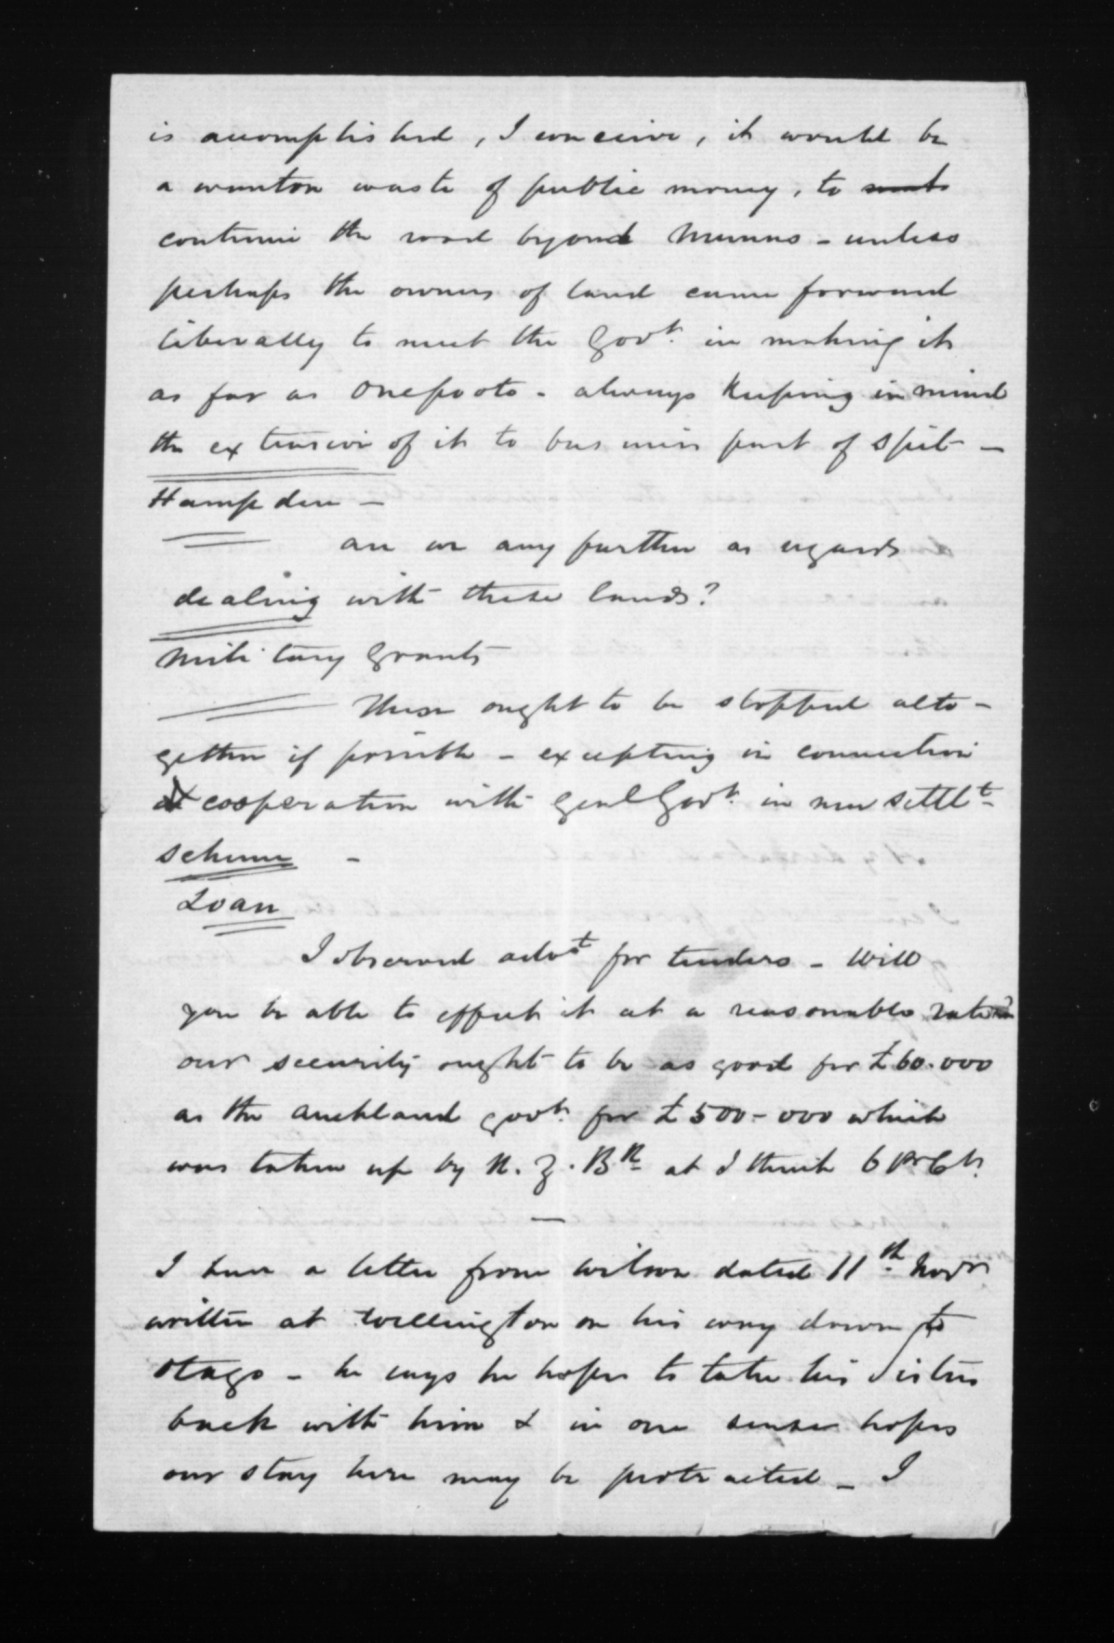 is accomplished, I conceive, it would be
a wanton waste of public money, to
continue the road beyond Munns - unless
perhaps the owners of land came forward
liberally to meet the Govt. in making it
as far as Onepoto - always keeping in mind
the extension of it to business part of Spit -
Hampden -
are we any further as regards
dealing with these lands?
Military Grants
These ought to be stopped alto-
gether if possible - excepting in connection
& cooperation with Genl Govt. in new settlt
scheme -
Loan
I observed advt for tenders - Will
you be able to effect it at a reasonable rate
our security ought to be as good for £60.000
as the Auckland Govt. for £500-000 which
was taken up by N. Z. Bk at I think 6 Pr Ct.
-
I have a letter from Wilson dated 11th Novr.
written at Wellington on his way down to
Otago - he says he hopes to take his sisters
back with him & in one sense hopes
our stay here may be protracted - I